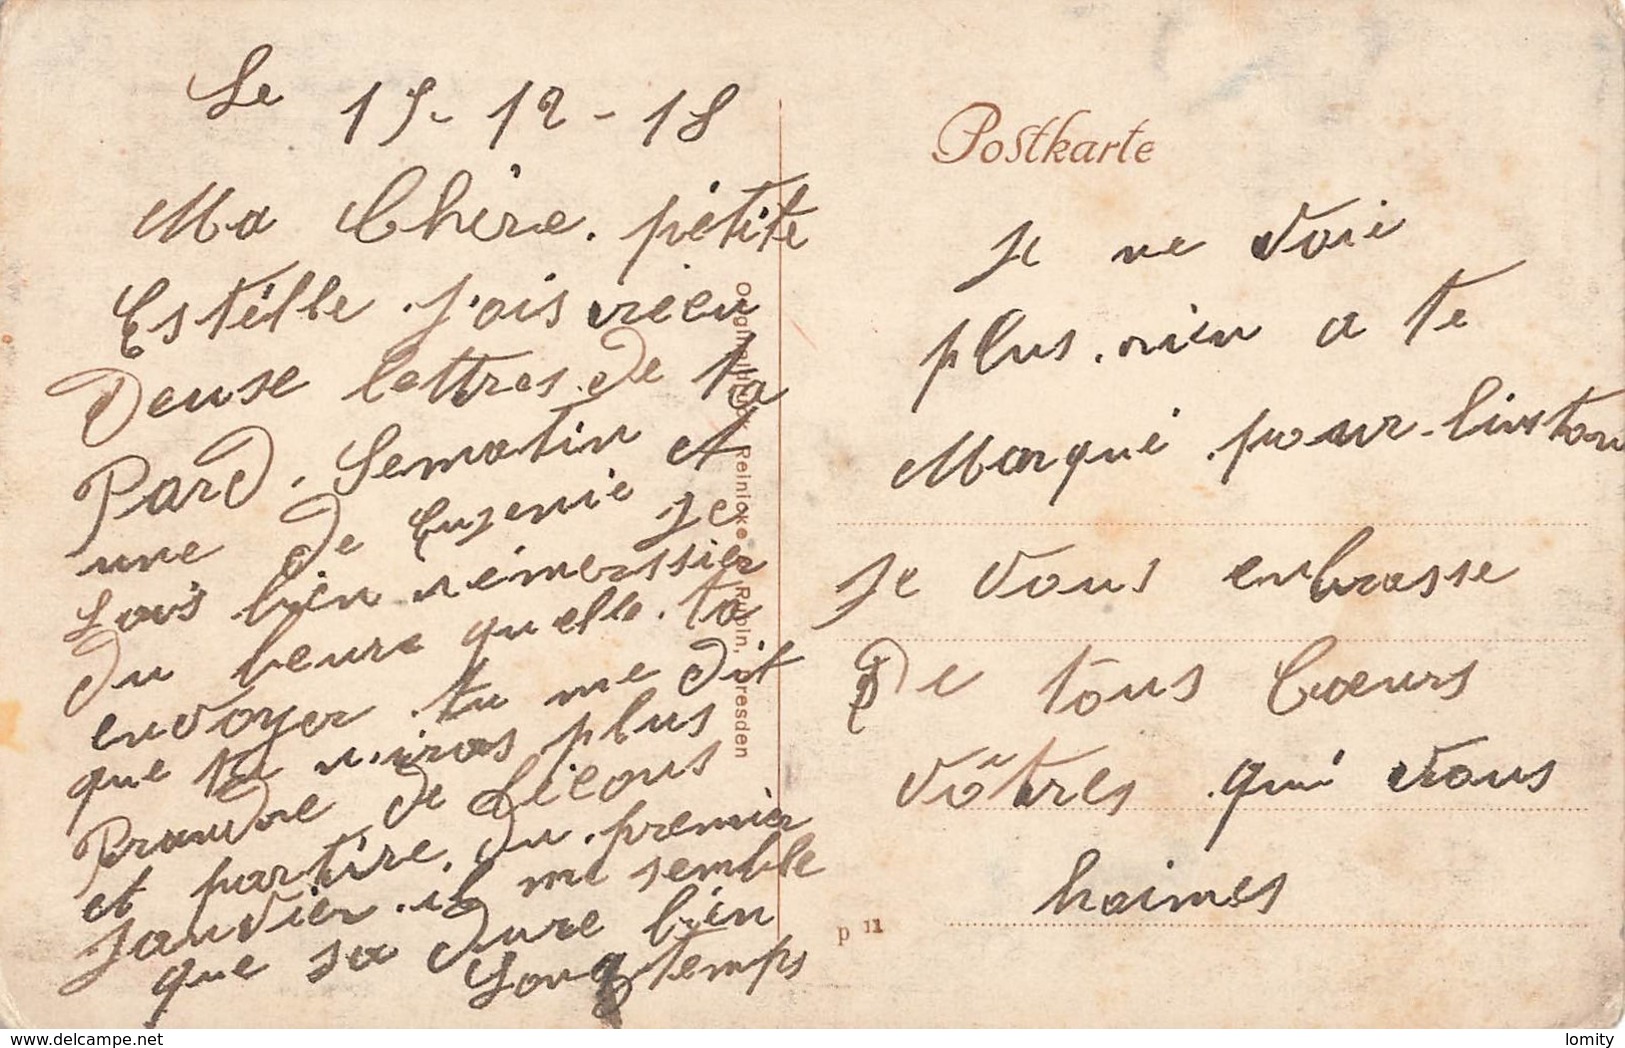 Le 15-12-18
Ma Chère. pétite
Estélle. j'ois receu
Deuse lettres. de ta
Pard. Sematin et
une de Eugenie je
sois bien rémerssier
du beure quelle. ta
envoyer. tu me dit
que tu n'iras plus
Prandre de Liçons
et partire. du. premier
janvier. il me semble
que sa dure bien
Longtemps
Originaldruck Reinicke & Rubin, Dresden
Postkarte
je ne voie
plus. rien a te
Marqué. pour. linstan
je vous enbrasse
De tous Cœurs
vôtres qui vous
haimes
p 11
delcampe.net
lomity